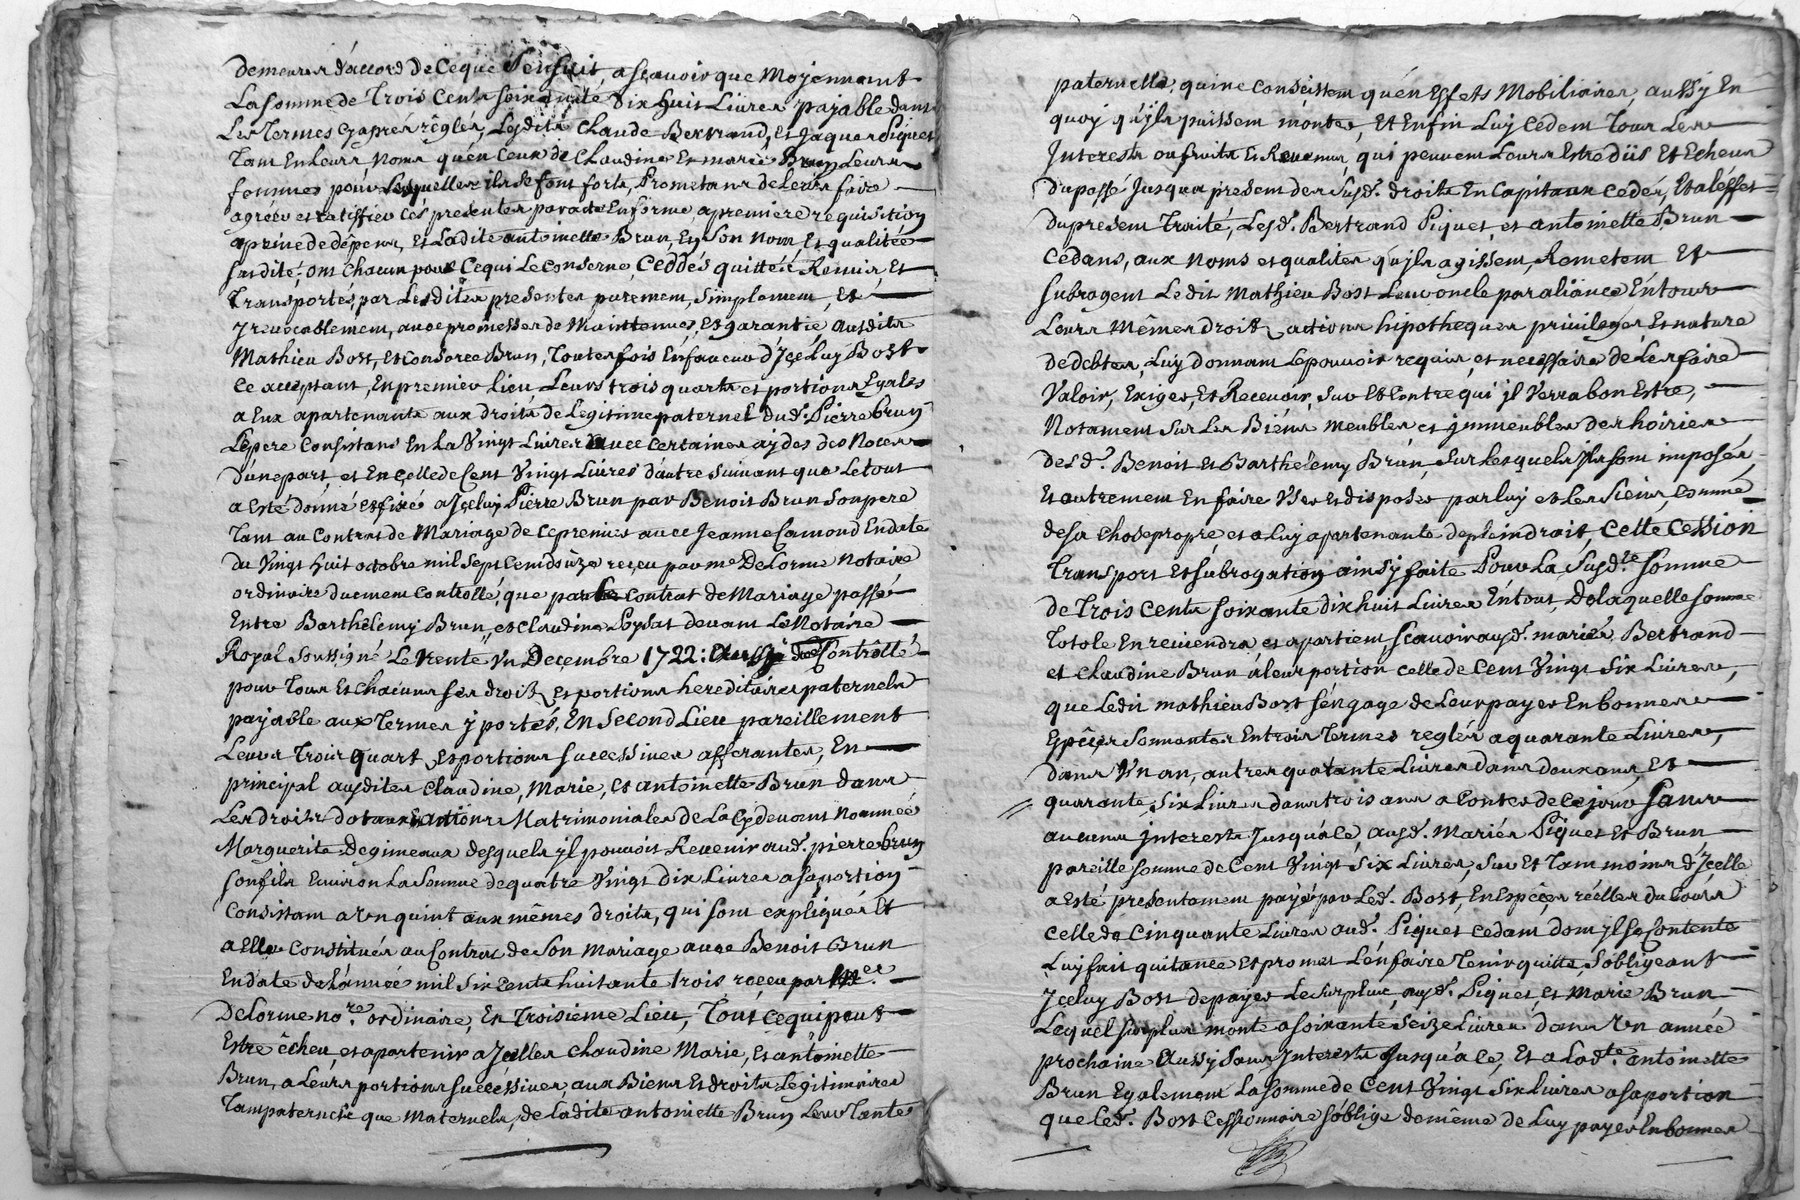 demeurer d'accord de ce que s'ensuit, ascavoir que moyennant
La somme de Trois Cents soixante dix huit Livres payable dans
Les Termes cy apres réglés, Lesdits Claude Bertrand, et Jaques Piquet
Tant en Leurs noms qu'en ceux de Claudine et marie Brun Leurs
femmes pour Lesquelles ils se font forts, Prometans de Leurs faire
agréer et ratiffier ces presentes par acte en forme a premiere requisition
a peine de dépens, et Ladite antoinette Brun, en son nom, et qualitée
susdite, ont chacun pour ce qui Le conserne, Ceddés quittés Remis, et
Transportés par Lesdites presentes purement, simplement, et
Jrevocablement, avec promesses de maintenues, et garantie ausdits
Mathieu Bost, et consorce Brun, Toutesfois en faveur d'Jceluy Bost
ce acceptant, En premier lieu, Leurs trois quarts et portions Egales
a Eux apartenants aux droits de Legitime paternel dud. Pierre brun
Le pere Consistans En La Vingt Livres avec certaines aydes de Noces
d'une part, et en celle de Cent Vingt Livres d'autre suivant que Le tout
a esté donné et fixé a Jceluy Pierre Brun par Benoit Brun son pere
Tant au Contrat de Mariage de ce premier avec Jeanne Camond En date
du Vingt huit octobre mil sept cent douze reçeu par me DeLorme notaire
ordinaire duement Controllé, que par le contrat de Mariage passé
Entre Barthélemy Brun, et Claudine Loydat devant Le Notaire
Royal soussigné Le Trente Vn Decembre 1722: Aussy due Contrôllé
pour Tous et chacuns ses droits et portions hereditaires paternels
payable aux Termes y portés, En second Lieu pareillement
Leurs Trois quart, et portions successives afferantes, En
principal ausdites Claudine, Marie, et antoinette Brun dans
Les droits dotaux actions Matrimoniales de La Cy devant Nommée
Marguerite Degimeaux desquels il pouvoit Revenir aud. pierre brun
son fils Environ La Somme de quatre Vingt dix Livres a sa portion
Consistant a Vn quint aux mêmes droits, qui sont expliqués Et
a Elle Constitués au Contrat de son mariage avec Benoit Brun
En date de L'année mil six cents huitante trois reçeu par Me.
DeLorme nore. ordinaire, En Troisième Lieu, Tout ce qui peut
Estre écheu, et apartenir a Jcelles Claudine Marie, et antoinette
Brun, a Leurs portions successives, aux Biens et droits Legitimaires
Tant paternels que maternels, de Ladite antoinette Brun Leur Tante
paternelle, qui ne Consistent qu'en Effets Mobiliaires, aussy En
quoy qu'ils puissent monter, Et Enfin Luy cedent Tous Les
Interests ou fruits et Revenus, qui peuvent Leurs Estre dûs Et Echeus
du passé Jusqua present des susd. droits En Capitaux cedés, Et a L'effet
du present Traité, Lesd. Bertrand Piquet, et antoinette Brun
Cedans, aux noms et qualites qu'ils agissent, Remetent Et
subrogent Ledit Mathieu Bost Leur oncle par aliance En tous
Leurs Mêmes droits, actions hipotheques privileges Et nature
de debtes, Luy donnant Le pouvoir requis, et necessaire de Les faire
Valoir, Exiger, et Recevoir, sur Et Contre qui il Verra bon Estre,
Notament sur Les Biens meubles et jmmeubles des hoiries
desd. Benoit et Barthelemy Brun, sur Lesquels ils sont imposés,
Et autrement En faire Vser et disposer par luy et les siens, comme
de sa chose propre et a Luy apartenante de plein droit, Cette Cession
Transport et subrogation ainsy faite Pour La susd.te somme
de Trois Cents soixante dix huit Livres En tout, De laquelle somme
Totole En reviendra et apartient, scavoir ausd. mariés Bertrand
et Claudine Brun a leur portion celle de Cent Vingt six Livres,
que Ledit mathieu Bost s'engage de Leur payer En bonnes
Espêces sonnantes En trois Termes reglés a quarante Livres,
dans Vn an, autres quatante Livres dans deux ans, Et
quarante six Livres dans trois ans a Conter de ce jour sans
aucuns interests Jusqu'a ce, ausd. Mariés Piquet Et Brun
pareille somme de Cent Vingt six Livres, sur Et Tant moins d'Jcelle
a esté presentement payée par Led. Bost, En Espêces réelles du cours
celle de Cinquante Livres aud. Piquet cedant dont il se Contente
Luy fait quitance et promet L'en faire Tenir quitte, s'obligeant
Jceluy Bost de payer Le surplus, ausd. Piquet, et Marie Brun
Lequel surplus monte a soixante seize Livres dans Vn année
prochaine Aussy sans Interests Jusqu'a ce, Et a Lad.te antoinette
Brun Egalement La somme de Cent Vingt six Livres a sa portion
que Led. Bost Cessionnaire s'oblige de même de Luy payer En bonnes